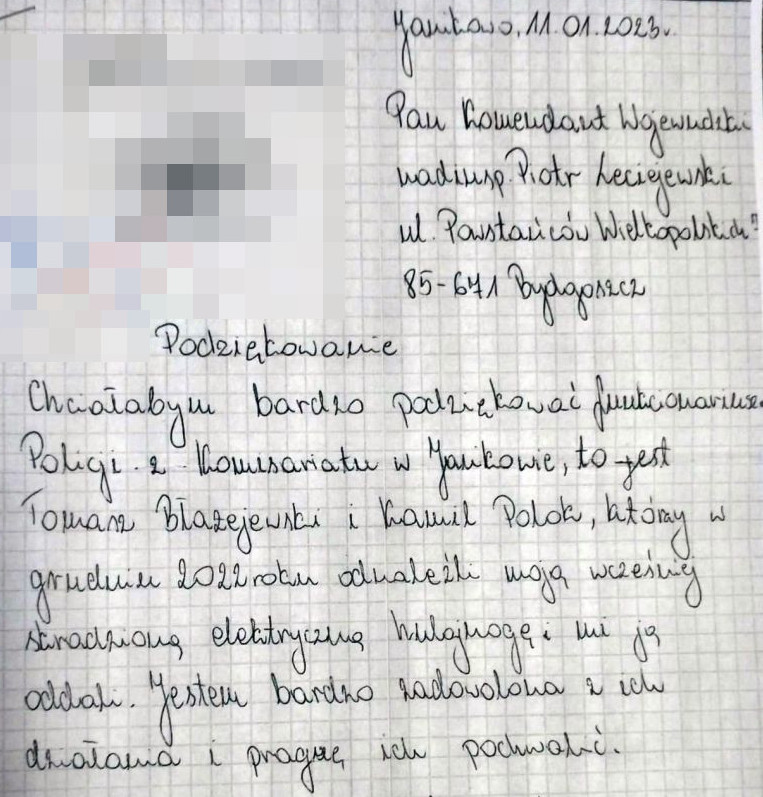 Janikowo, 11.01.2023r.
Pan Komendant Wojewódzki
nadinsp. Piotr Leciejewski
ul. Powstańców Wielkopolskich
85-671 Bydgoszcz
Podziękowanie
Chciałabym bardzo podziękować funkcjonariusz
Policji z Komisariatu w Janikowie, to jest
Tomasz Błażejewski i Kamil Polok, którzy w
grudniu 2022 roku odnaleźli moją wcześniej
skradzioną elektryczną hulajnogę i mi ją
oddali. Jestem bardzo zadowolona z ich
działania i pragnę ich pochwalić.